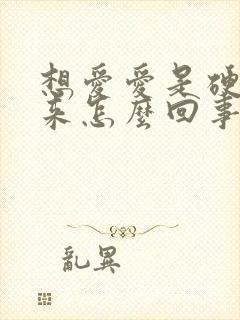 想愛愛是硬
來怎麼回事
亂異